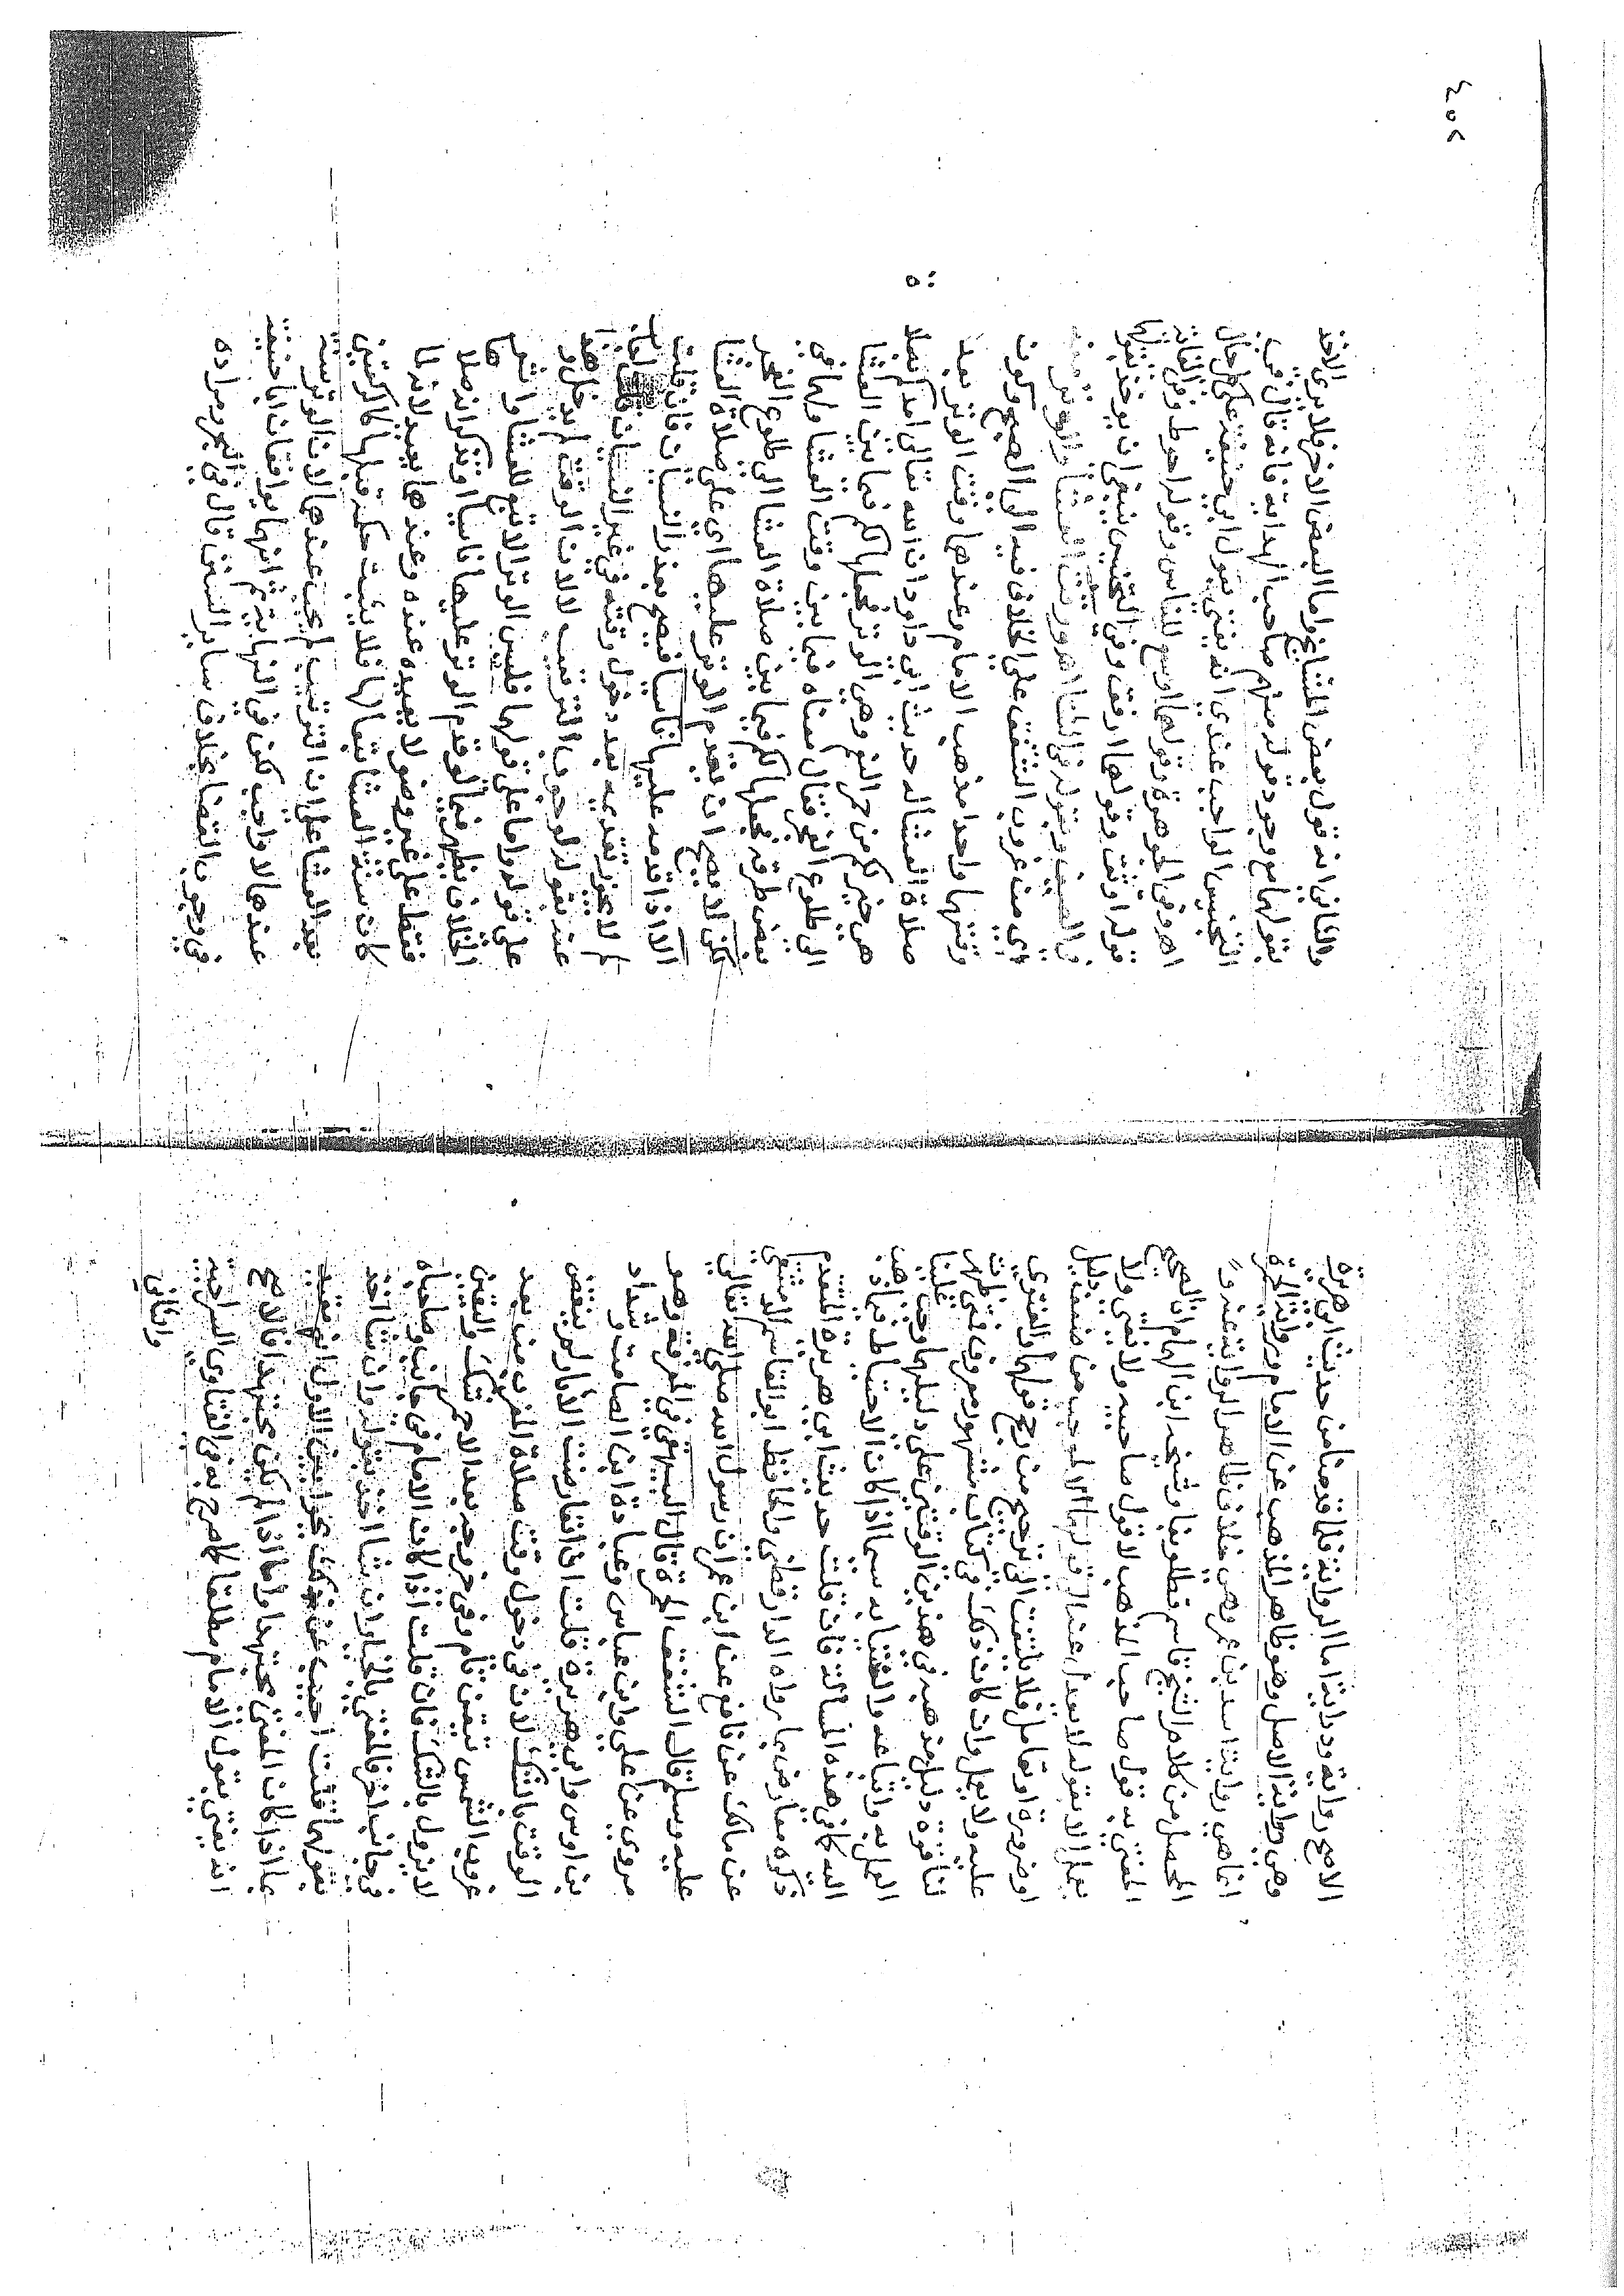 الاصح رواية ودراية اما الرواية فلما قدمنا من حديث ابي هريرة
وهي رواية الاصل وهو ظاهر المذهب عن الامام ورواية الحمرة
انما هي رواية اسد بن عمرو وهي خلاف ظاهر الرواية عنه و
المحصل من كلام الشيخ قاسم قطلوبغا وشيخه ابن الهمام ان الصحيح
المفتى به قول صاحب المذهب لا قول صاحبيه ولا يفتى ولا
يعمل الا بقوله لا يعدل عنه الى قولهما الا لموجب من ضعف دليل
او ضرورة او تعامل فلا يلتفت الى ترجيح من رجح قولهما ولا الفتوى
عليه ولا يعمل وان كان ذلك في كتاب مشهور معروف فمتى ظهرت
لنا قوة دليل مذهبه في هذين الوقتين على دليلهما وجب علينا
العمل به واتباعه والفتيا به سيما اذا كان الاحتياط
كما في هذه المسألة فان قلت حديث ابي هريرة المتقدم
ذكره معارض بما رواه الدارقطني والحافظ ابو القاسم الدمشقي
عن مالك عن نافع عن ابن عمر ان رسول الله صلى الله تعالى
عليه وسلم قال الشفق الحمرة قال البيهقي في المعرفة وهو
مروي عن علي وابن عباس وعبادة ابن الصامت وشداد
بن اوس وابي هريرة قلت ان تعارضت الاثار لم ينقض
الوقت بالشك لان في دخول وقت صلاة المغرب من بعد
غروب الشمس تيقن تام وفي خروجه بعد الاحمر شك واليقين
لا يزول بالشك فان قلت اذا كان الامام في جانب وصاحباه
في جانب اخر فالمفتي بالخيار ان شا اخذ بقوله وان شا اخذ
بقولهما قلت اجيب عن ذلك بجوابين الاول انه مقيد
بما اذا كان المفتي مجتهدا واما اذا لم يكن مجتهدا فالاصح
انه يفتي بقول الامام مطلقا كما صرح به في الفتاوى السراجية
والثاني
والثاني انه قول بعض المشايخ واما البعض الاخر فلا يرى الاخذ
بقولهما مع وجود قوله منهم صاحب الهداية فانه قال في
التجنيس الواجب عندي انه يفتي بقول ابي حنيفة على كل حال
اهـ وفي الجوهرة قولهما اوسع للناس وقوله احوط وفي
قوله اوثق وقولهما ارفق وفي التجنيس ينبغي ان يوخذ بقولهما
في الصيف وبقوله في الشتا اهـ ووقت العشا والوتر منه
اي من غروب الشفق على الخلاف فيه الى الصبح وكون
وقتهما واحدا مذهب الامام وعندهما وقت الوتر بعد
صلاة العشا له حديث ابي داود ان الله تعالى امدكم بصلاة
هي خير لكم من حمر النعم وهي الوتر فجعلها لكم فيما بين العشا
الى طلوع الفجر فقال معناه فيما بين وقت العشا ولهما في
بعض طرقه فجعلها لكم فيما بين صلاة العشا الى طلوع الفجر
لكن لا يصح ان يقدم الوتر عليها اي على صلاة العشا
الا اذا قدمه عليها ناسيا فيصح بعذر النسيان فان قلت
لم لا يجوز تقديمه بعد دخول وقته في غير النسيان
عنده بقوله لوجوب الترتيب لا لان الوقت لم يدخل وهذا
على قوله واما على قولهما فليس الوتر الا تبع للعشا واثر
الخلاف يظهر فيما لو قدم الوتر عليها ناسيا او تذكر انه صلاها
فقط على غير وضو لا يعيده عنده وعندهما يعيد لانها
كان سنة العشا تبعا لها فلا يثبت حكمه قبلها كالركعتين
بعد العشا على ان الترتيب لم يجب عندهما لان الوتر سنة
عندهما لا واجب لكن في النهاية ثم انهما يوافقان ابا حنيفة
في وجوب القضا بخلاف ساير السنن قال في البحر ومراده